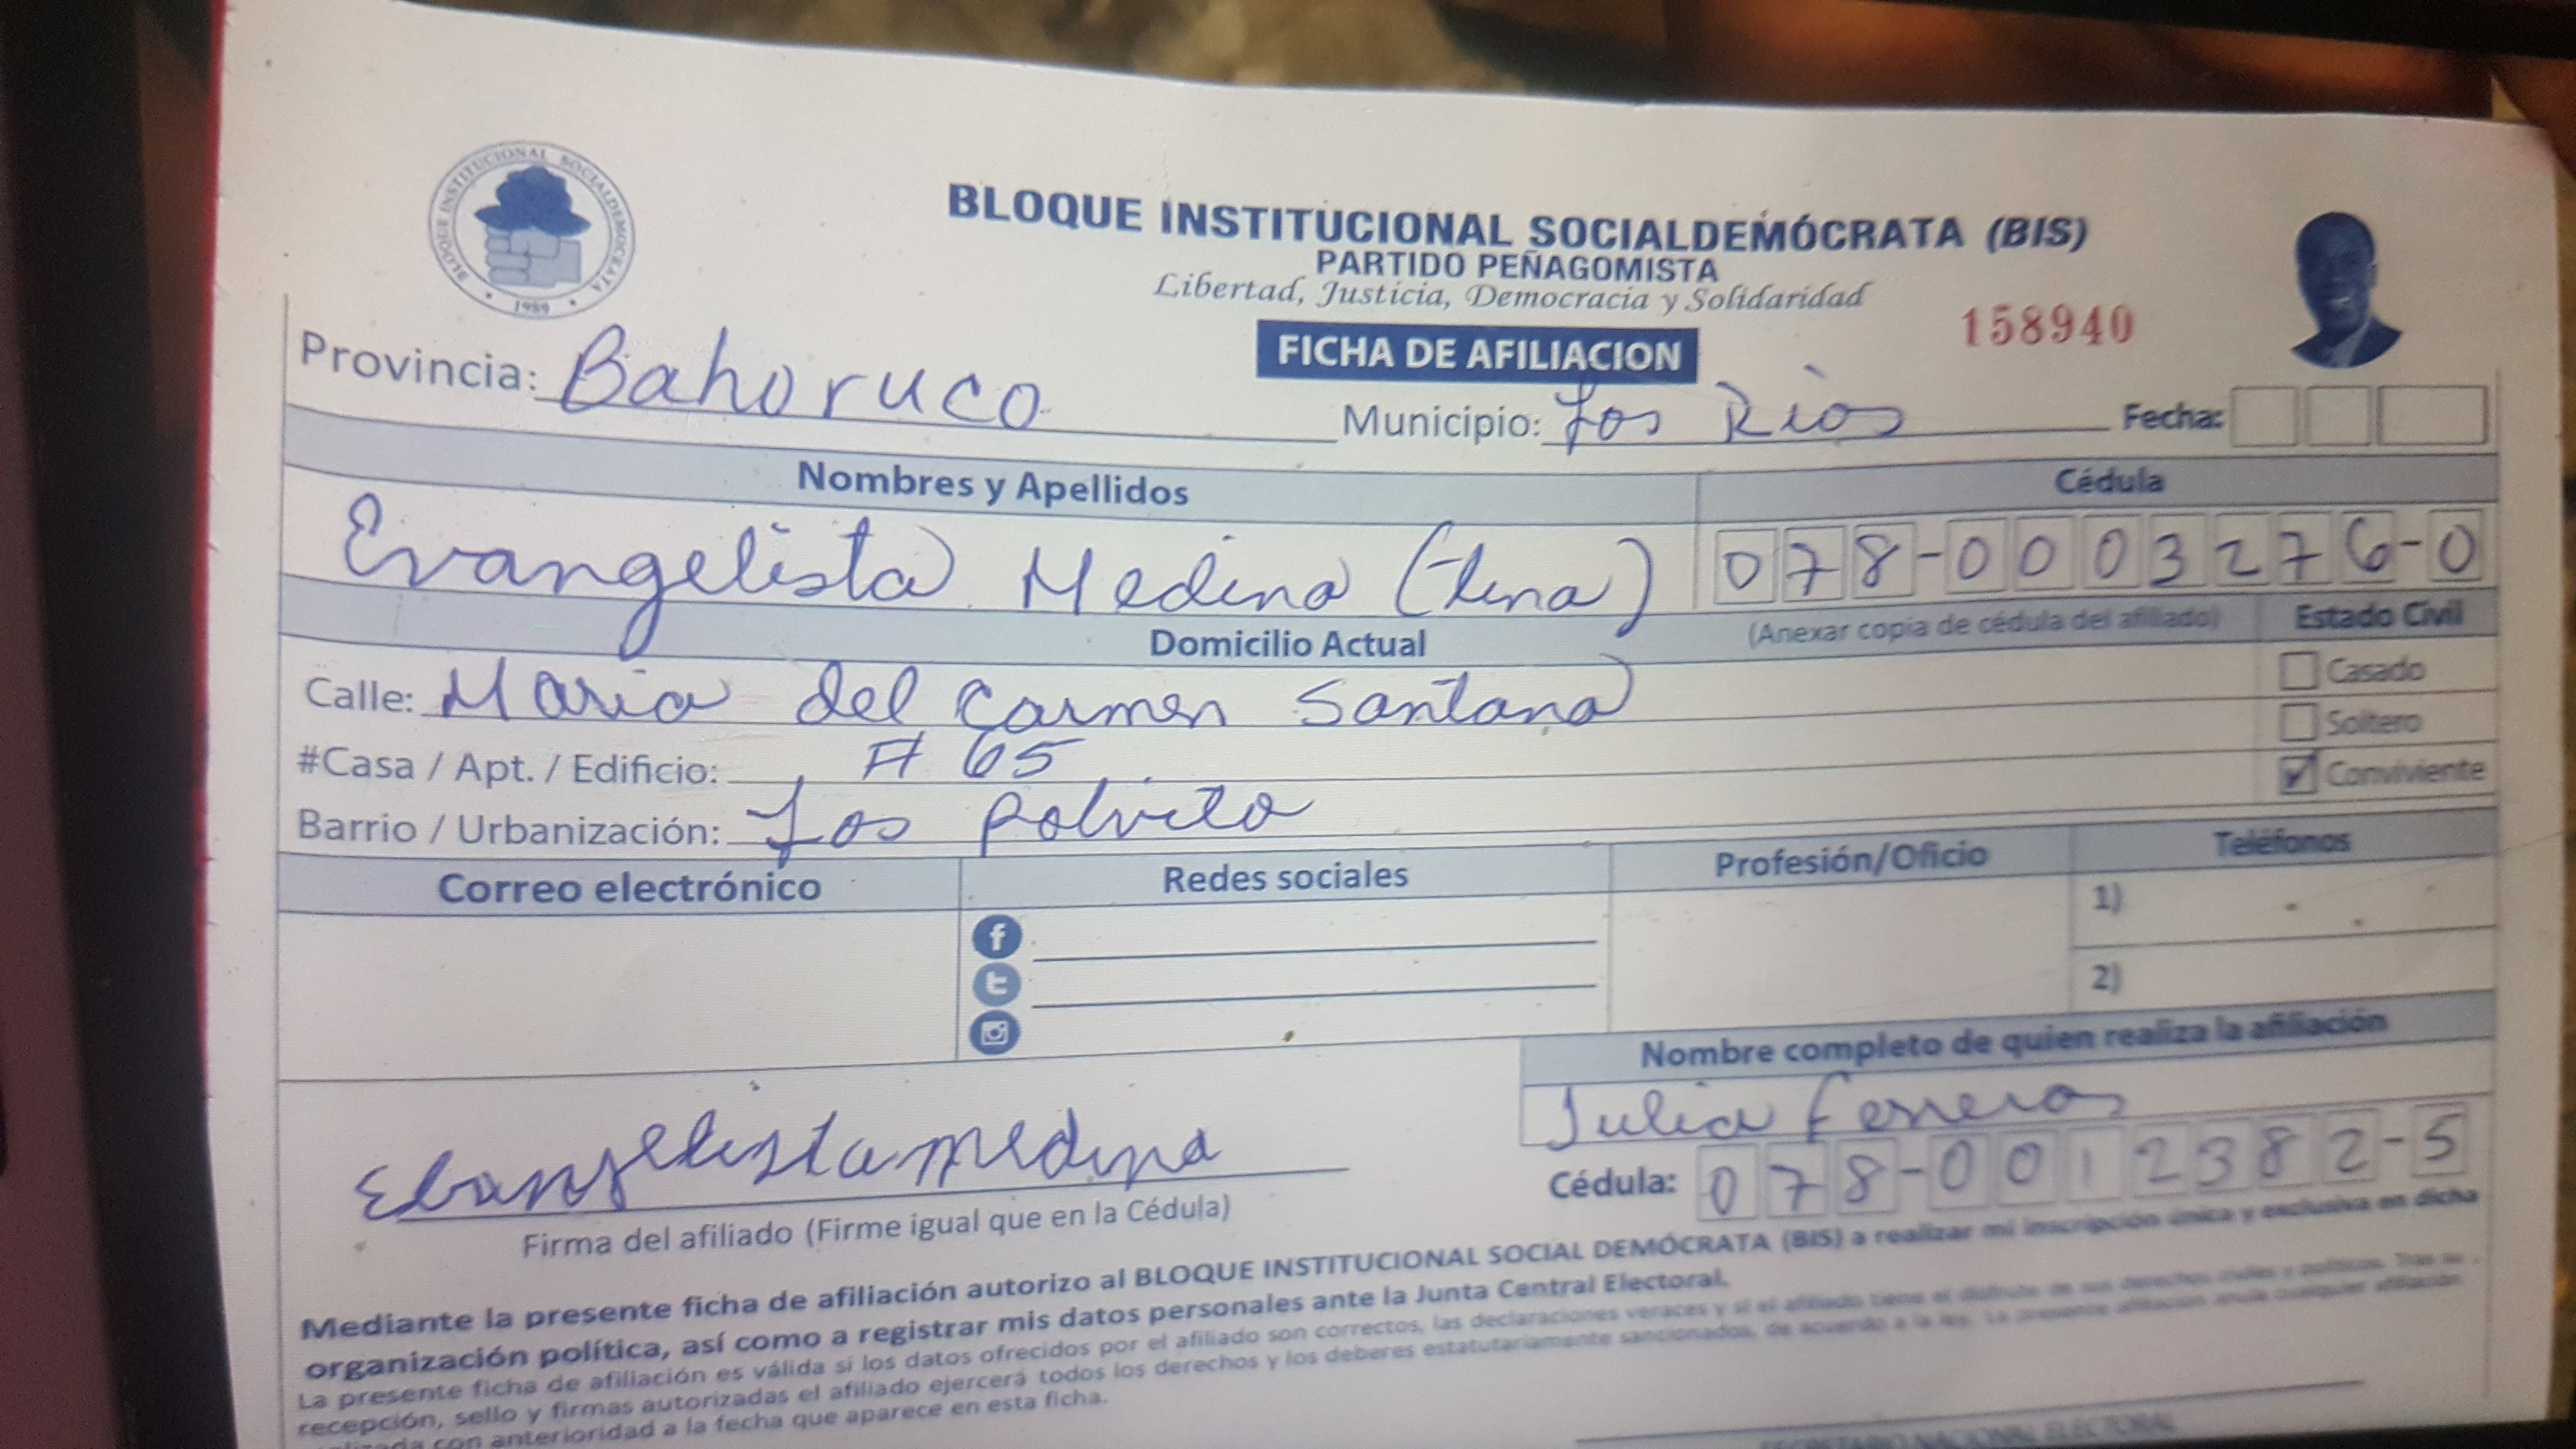 BLOQUE INSTITUCIONAL SOCIALDEMOCRATA
1989
BLOQUE INSTITUCIONAL SOCIALDEMÓCRATA (BIS)
PARTIDO PEÑAGOMISTA
Libertad, Justicia, Democracia y Solidaridad
158940
FICHA DE AFILIACION
Provincia: Bahoruco Municipio: Los Rios Fecha:
Nombres y Apellidos Cédula
Evangelista Medina 078-0003276-0
(Anexar copia de cédula del afiliado) Estado Civil
Domicilio Actual
Casado
Calle: Maria del Carmen Santana
Soltero
#Casa / Apt. / Edificio: # 65
Conviviente
Barrio / Urbanización: Los Polvito
Correo electrónico Redes sociales Profesión/Oficio Teléfonos
1)
2)
Nombre completo de quien realiza la afiliación
Julia Ferreras
Ebangelista medina
Cédula: 078-0012382-5
Firma del afiliado (Firme igual que en la Cédula)
Mediante la presente ficha de afiliación autorizo al BLOQUE INSTITUCIONAL SOCIAL DEMÓCRATA (BIS) a realizar mi inscripción única y exclusiva en dicha
organización política, así como a registrar mis datos personales ante la Junta Central Electoral.
La presente ficha de afiliación es válida si los datos ofrecidos por el afiliado son correctos, las declaraciones veraces y si el afiliado tiene el disfrute de sus derechos civiles y políticos. Tras su
recepción, sello y firmas autorizadas el afiliado ejercerá todos los derechos y los deberes estatutariamente sancionados, de acuerdo a la ley. La presente afiliación anula cualquier afiliación
con anterioridad a la fecha que aparece en esta ficha.
SECRETARIO NACIONAL ELECTORAL